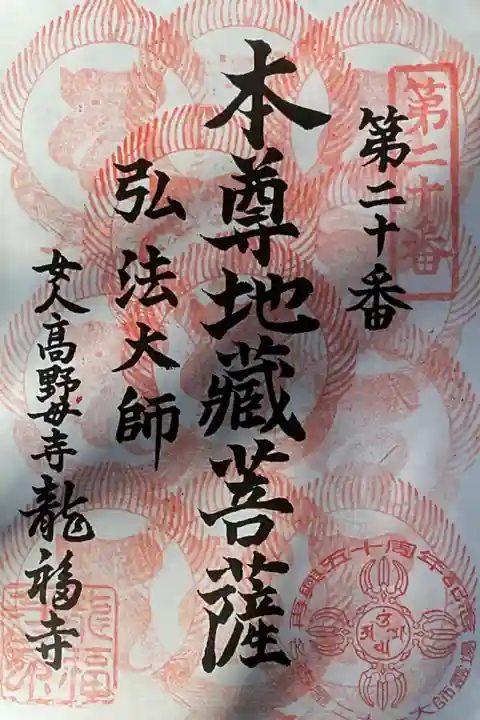 第二十番
第二十番
本尊地藏菩薩
弘法大師
女人高野母寺龍福寺
再興五十周年記念
大師霊場
龍福